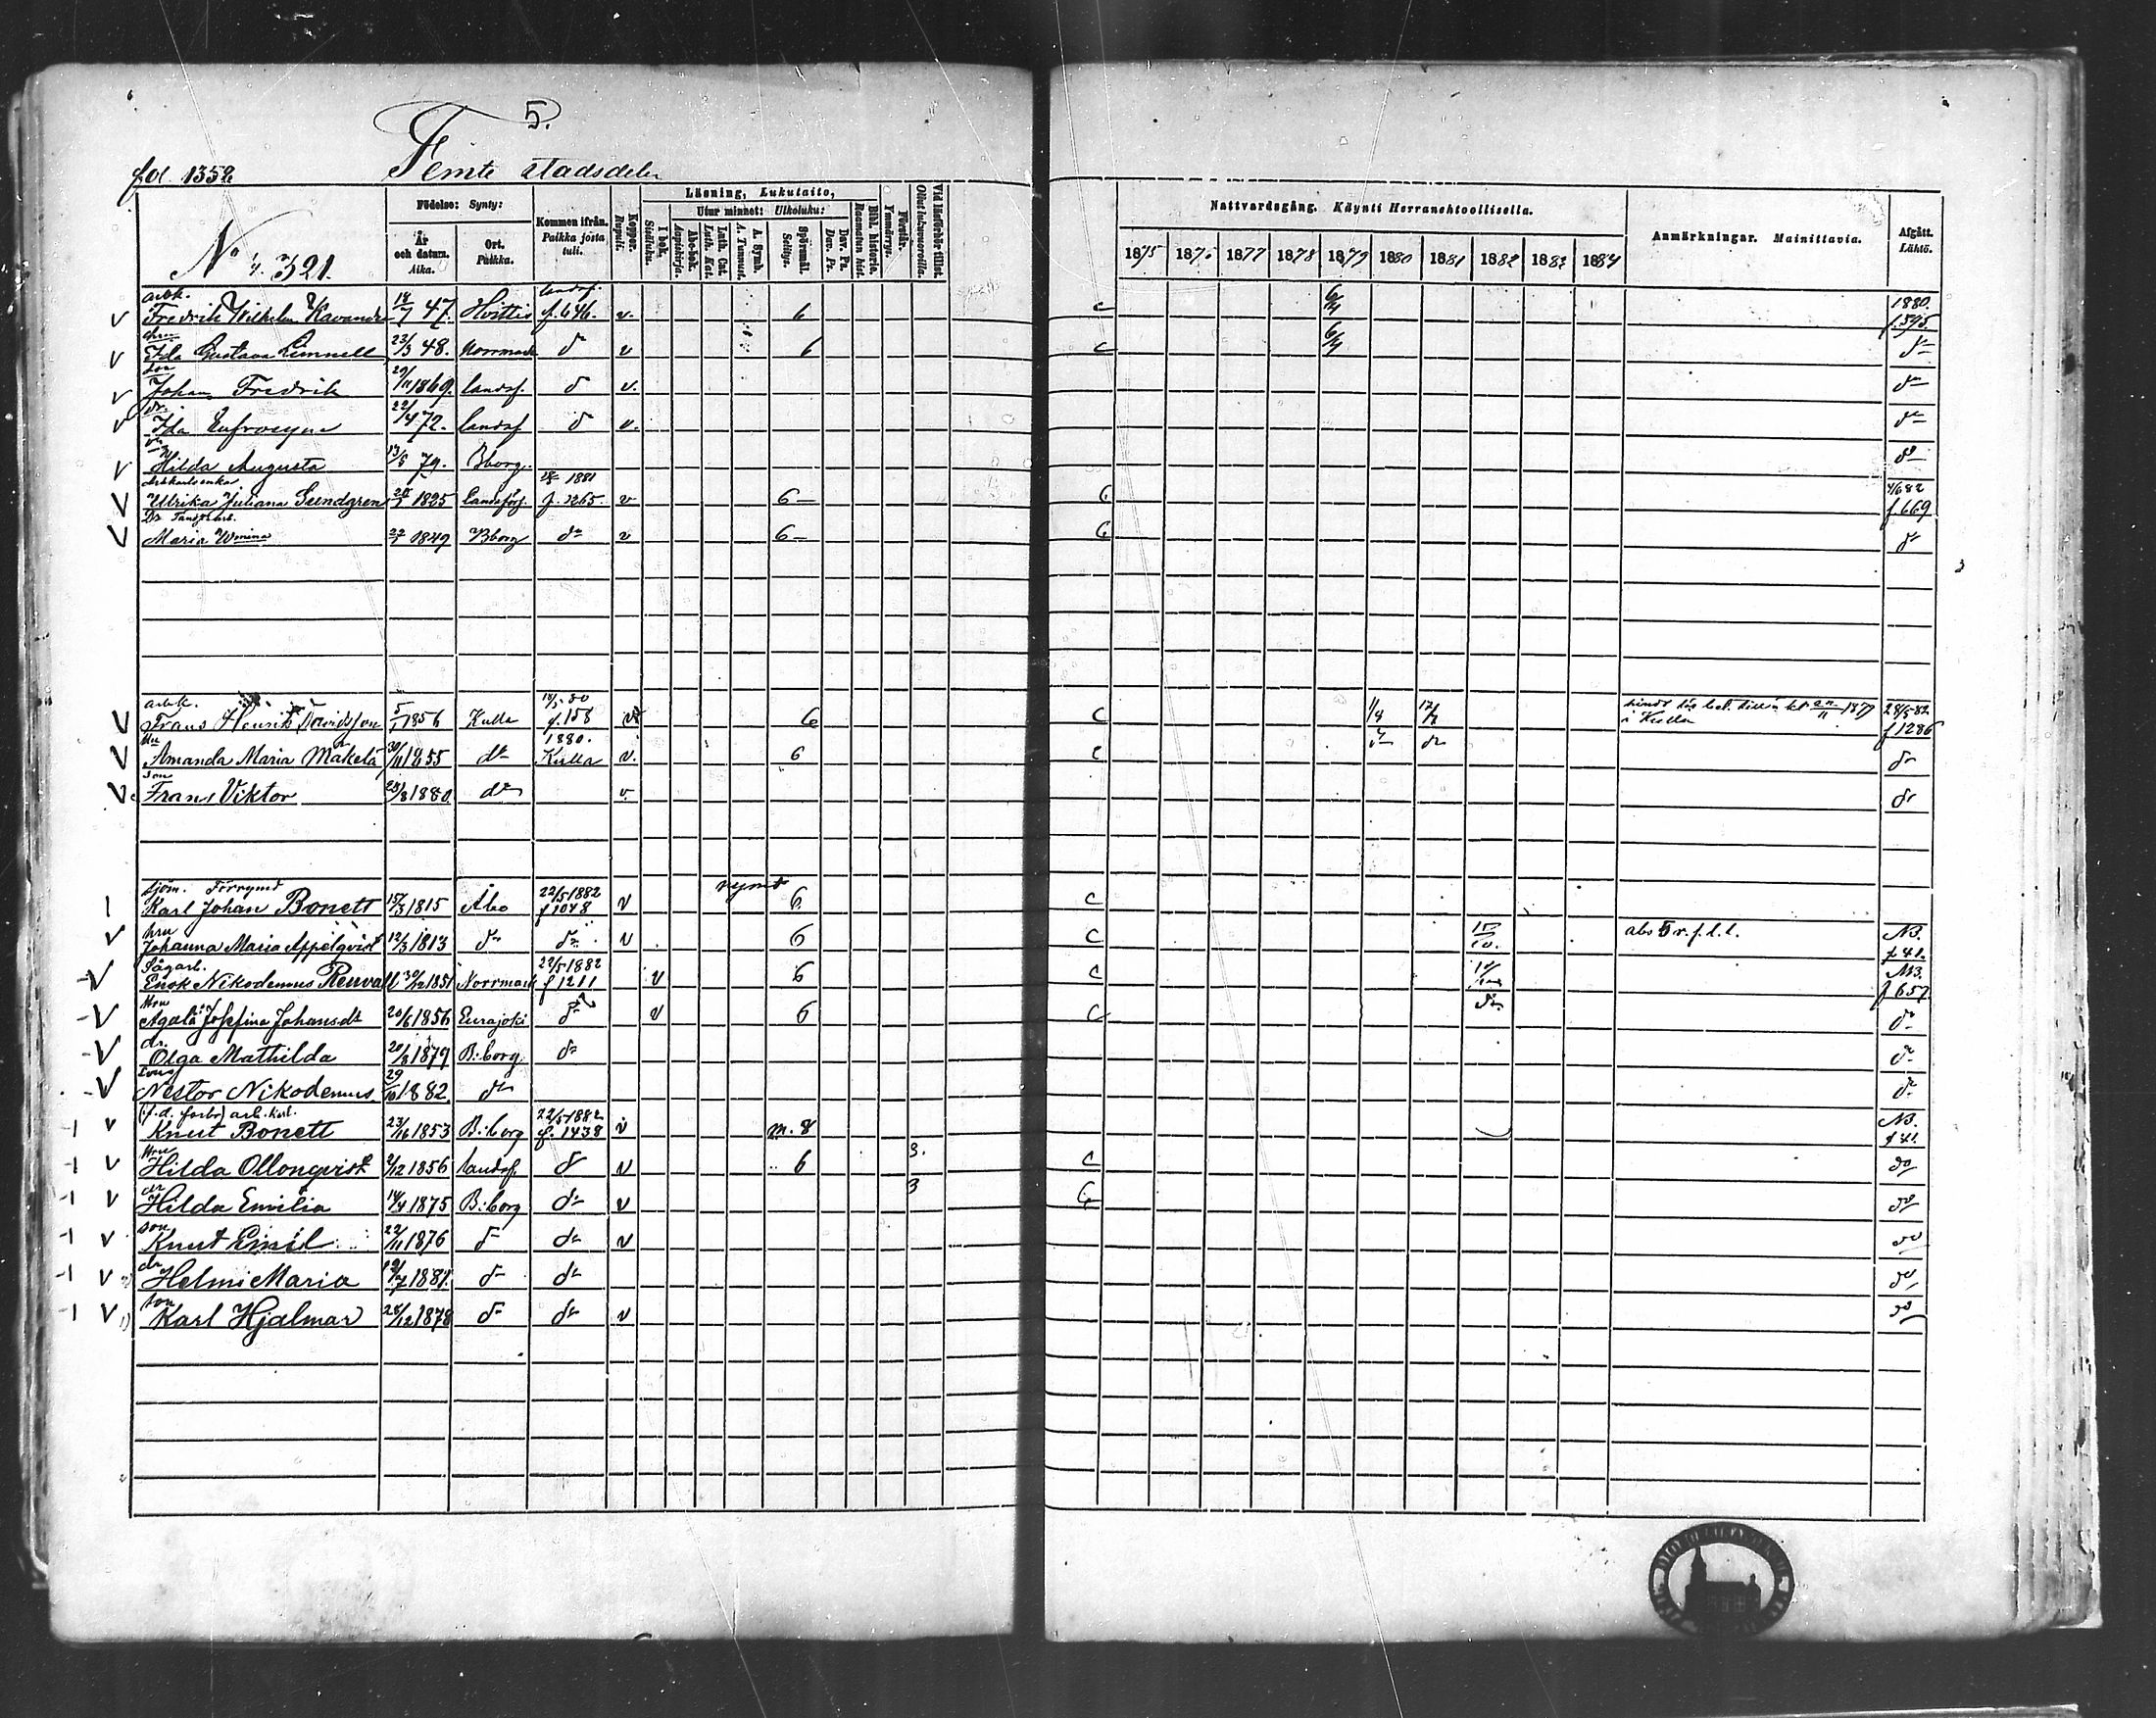 5.
fol. 1352 Femte stadsdelen
N 4. 321.
Födelse: Synty:
År och datum. Aika.
Ort. Paikka.
Kommen ifrån. Paikka josta tuli.
Koppor. Rupuli.
Läsning, Lukutaito,
I bok. Sisäluku.
Utur minnet: Ulkoluku:
Abc-bok. Aapiskirja.
Luth. Cat. Luth. Kat.
A. Symb. A. Tunnust.
Spörsmål. Selitys.
Dav. Ps. Dav. Ps.
Bibl. historia. Raamatun hist.
Förstår. Ymmärrys.
Vid läsförhör tillst. Ollut lukuvuoroilla.
Nattvardsgång. Käynti Herranehtoollisella.
1875 1876 1877 1878 1879 1880 1881 1882 1883 1884
Anmärkningar. Mainittavia.
Afgått. Lähtö.
arbk. landsf.
Fredrik Wilhelm 47. f. 646. v. 6 c 6/4 1880. f. 595.
hru
Ida Gustava 23/3 48. Norrmark d:o v 6 c 6/4 d:o
son
Johan Fredrik 29/11 1869. landsf. d:o v. d:o
dr.
Ida 22/4 72. landsf d:o v. d:o
dr
Hilda Augusta 13/6 79. Bborg. d:o
1881
Ulrika Juliana Lundgren 1825 Landsförs. f. 1265. v 6 6 4/6 82 f. 669
Maria Wmina 1849 Bborg d:o v 6 6 d:o
arbk. 18/5 80
Frans Henrik Davidsson 1856 Kulla f. 158 v 6 c 1/4 17/4 1877 i Kulla 28/5 82 f 1286
Hu 1880.
Amanda Maria Mäkelä 30/11 1855 d:o Kulla v. 6 c d:o d:o d:o
son
Frans Viktor 23/8 1880. d:o v. d:o
sjöm. Förrymd rymt
Karl Johan Bonett 15/3 1815 Åbo 22/5 1882 f 1048 v 6 c
hru
Johanna Maria Appelqvist 12/3 1813 d:o d:o v 6 c abs 5 r. f. l. l. N3. f 41.
Sågarb. 22/5 1882
Enok Nikodemus Renvall 30/12 1851 Norrmark f 1211 v 6 c N3. f 657.
Hru
Agata Josefina Johansdr 20/6 1856 Eurajoki d:o v 6 c d:o d:o
dr.
Olga Mathilda 20/3 1879 B:borg d:o d:o
son
Nestor Nikodemus. 29/10 1882. d:o d:o
(f. d. forbr) arb. karl.
Knut Bonett 23/6 1853 B:borg 22/5 1882 f. 1438 v m. 8 N3. f 41.
Hru
Hilda Ollonqvist 2/12 1856 landsf. d:o v 6 3. c do
dr
Hilda Emilia 14/4 1875 B:borg d:o v 3 c do
son
Knut Emil 22/11 1876 d:o d:o v do
dr
Helmi Maria 1881. d:o d:o do
son
Karl Hjalmar 28/12 1878 d:o d:o v do